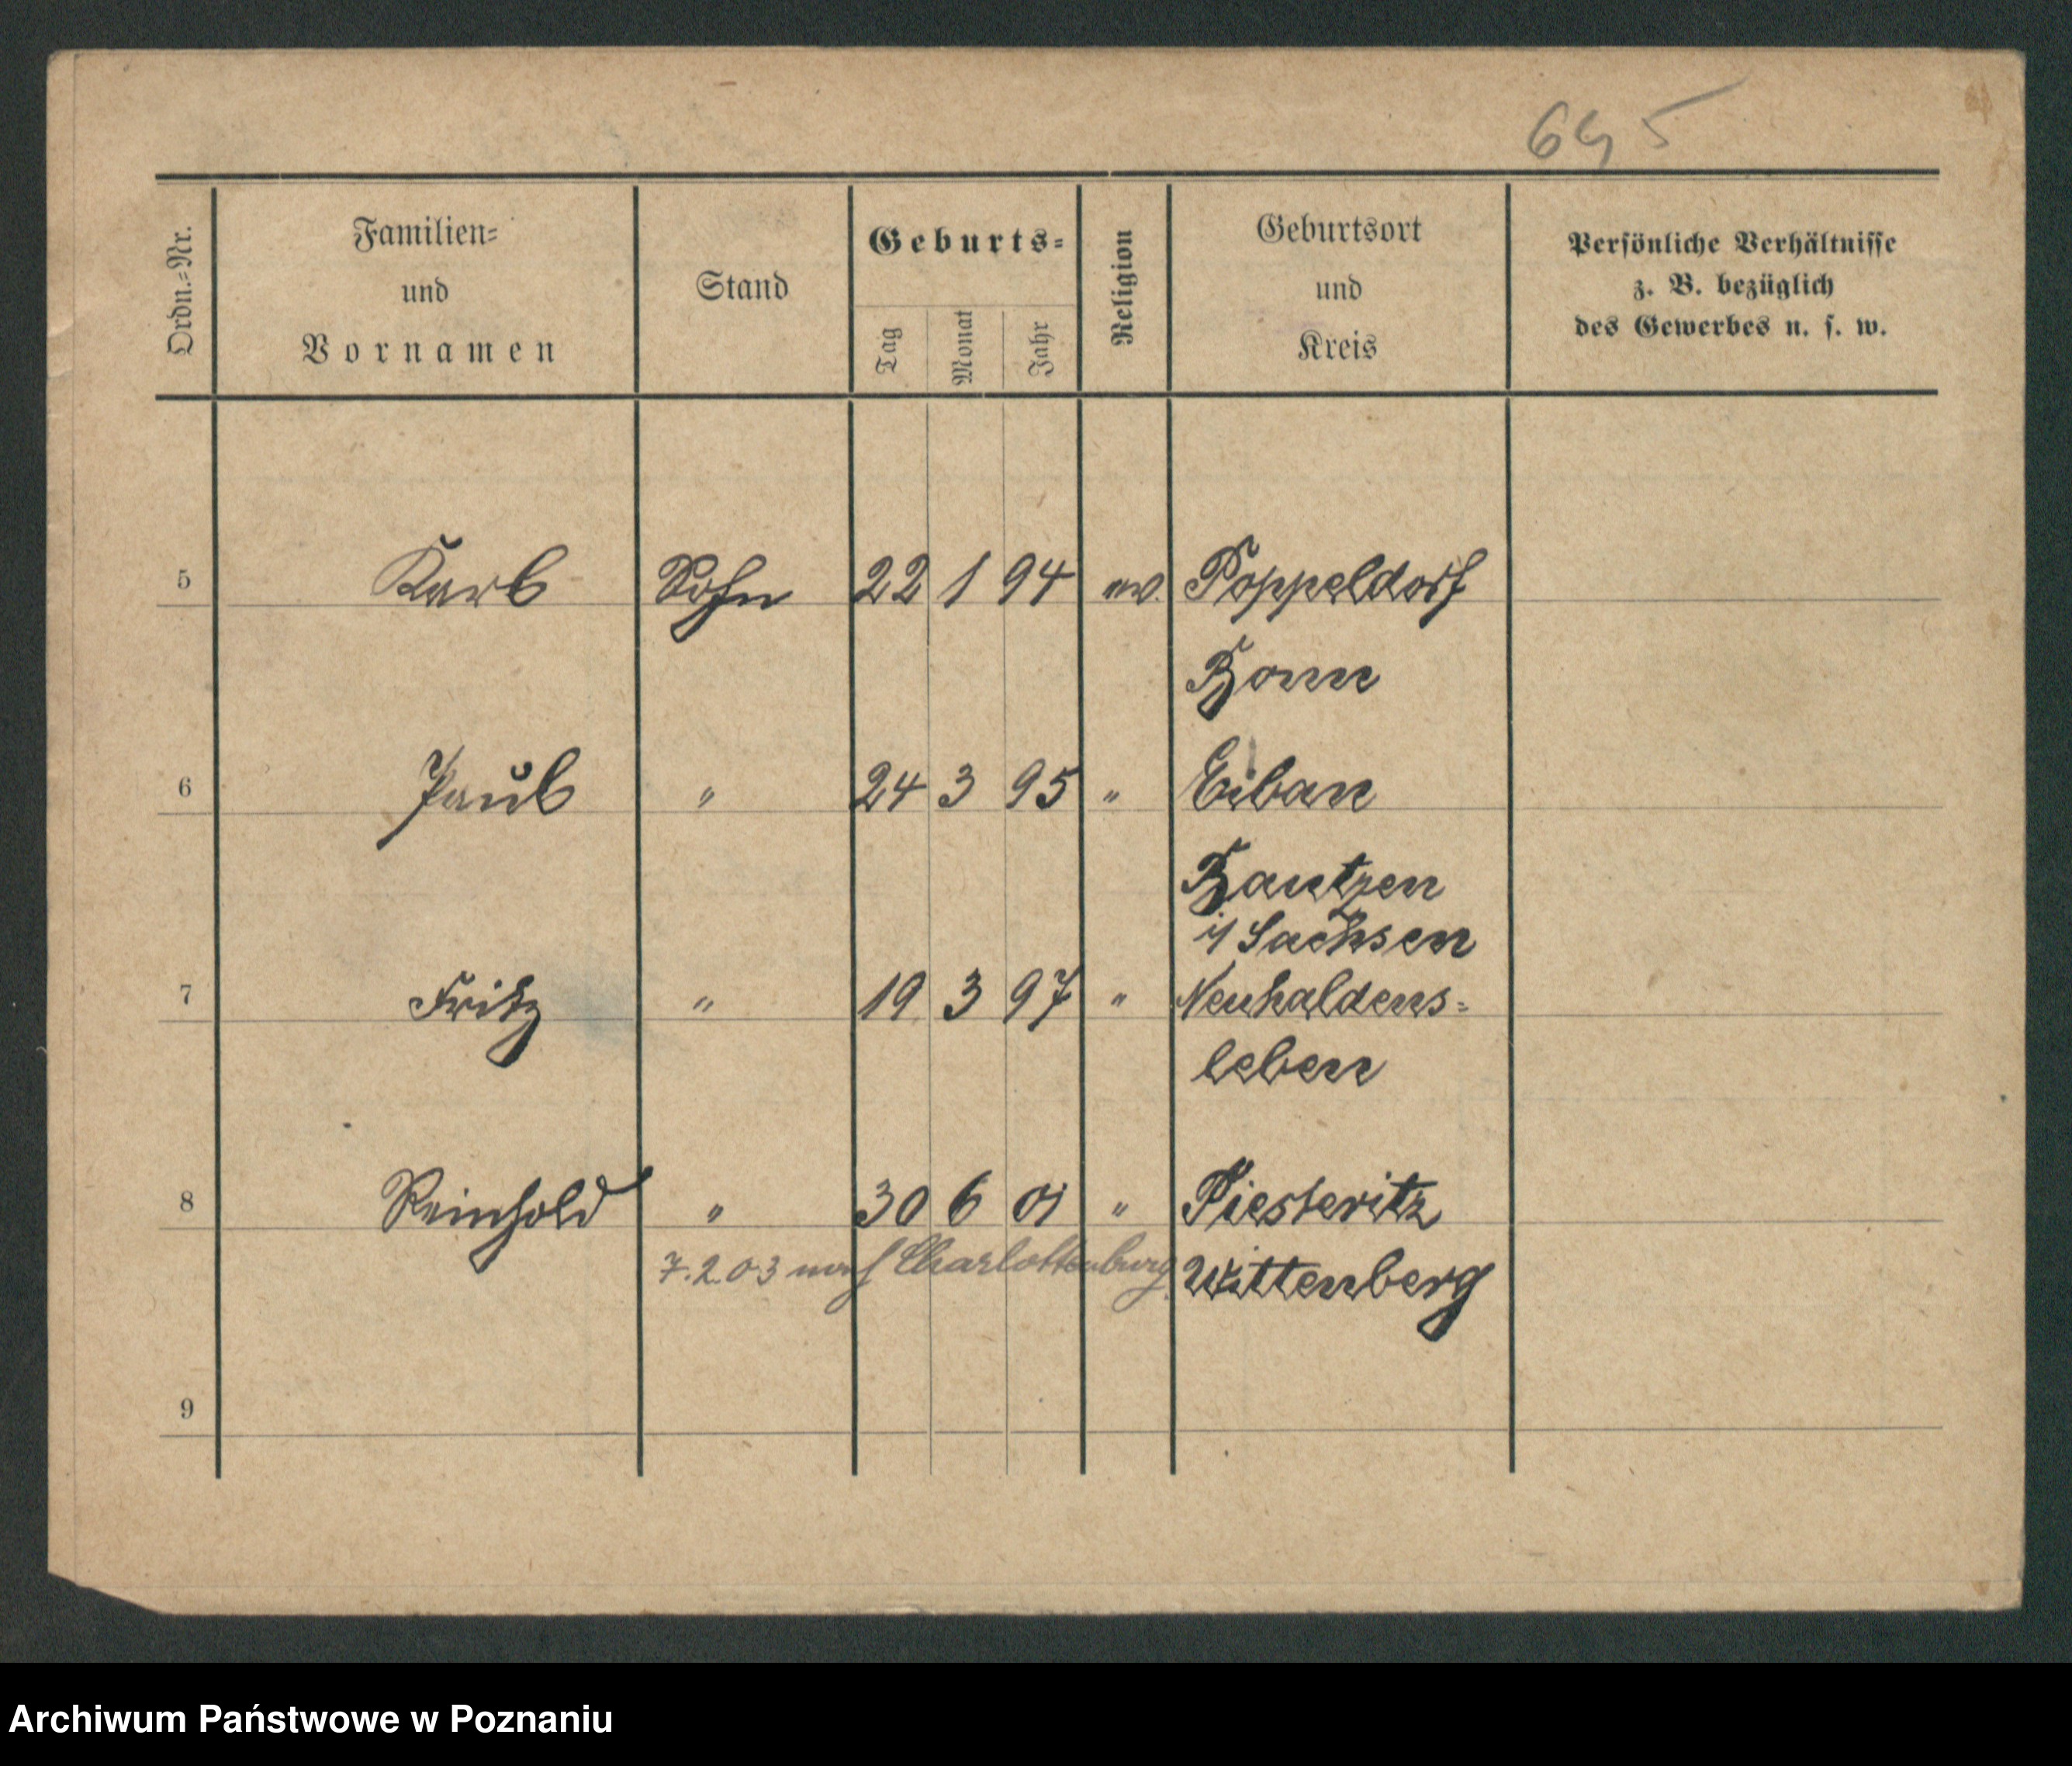 695
Ordn.=Nr.
Familien=
und
Vornamen
Stand
Geburts=
Tag
Monat
Jahr
Religion
Geburtsort
und
Kreis
Persönliche Verhältnisse
z. B. bezüglich
des Gewerbes u. s. w.
5 Karl Sohn 22 1 94 ev. Poppeldorf
Bonn
6 Paul " 24 3 95 " Eibau
Bautzen
i/ Sachsen
7 Fritz " 19 3 97 " Neuhaldens=
leben
8 Reinhold " 30 6 01 " Piesteritz
7.2.03 nach Charlottenburg. Wittenberg
9
Archiwum Państwowe w Poznaniu